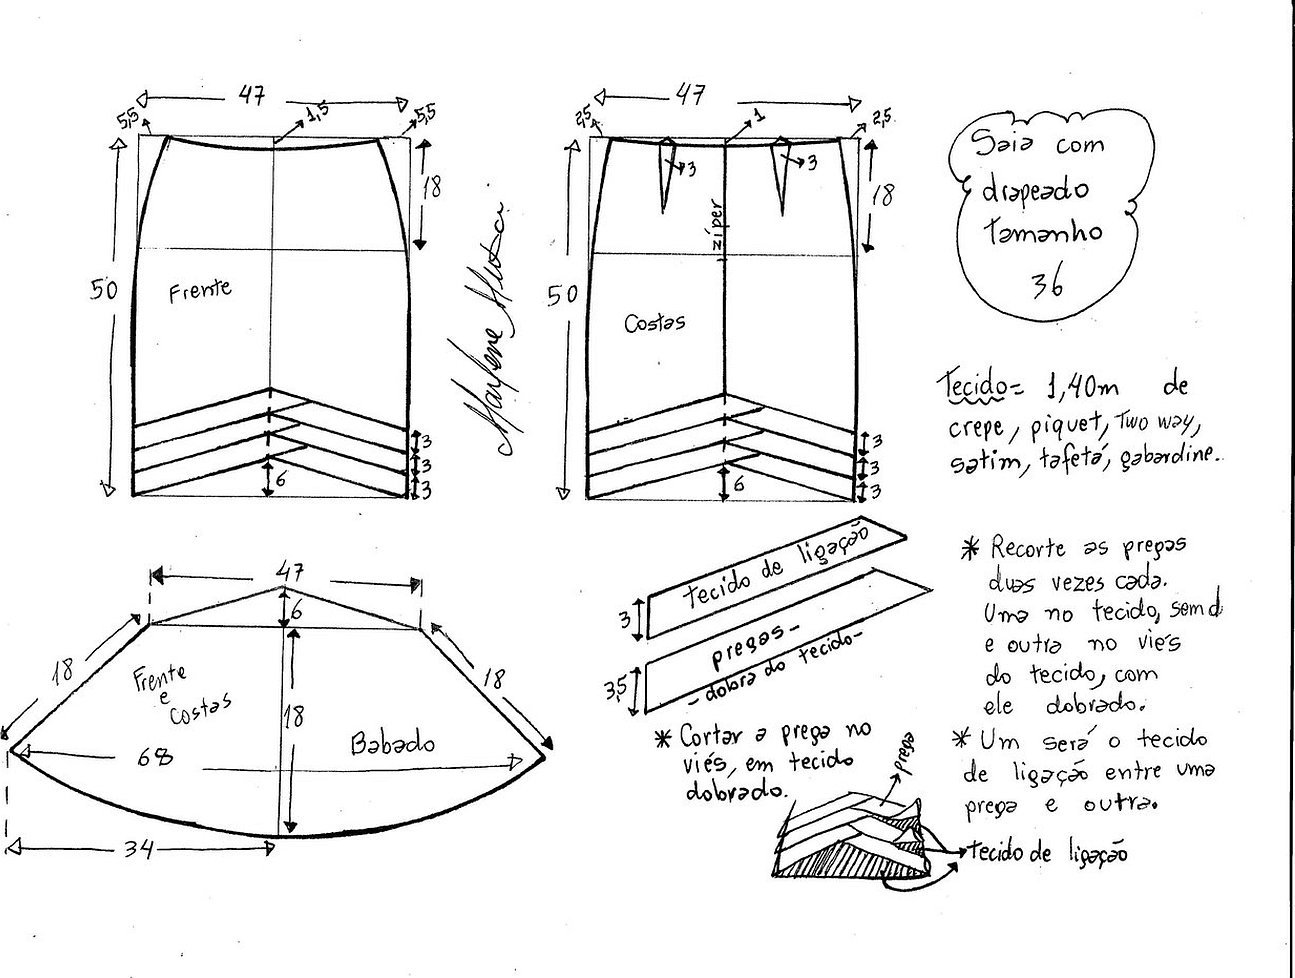 47
5,5
1,5
5,5
18
50
Frente
3
3
3
6
Marlene Mukai
47
2,5
1
2,5
3
3
18
zíper
50
Costas
3
3
3
6
Saia com
drapeado
tamanho
36
Tecido= 1,40m de
crepe, piquet, Two way,
satim, tafetá, gabardine.
47
6
18
18
18
Frente
e
Costas
68
Babado
34
tecido de ligação
3
pregas-
-dobra do tecido-
3,5
* Cortar a prega no
viés, em tecido
dobrado.
* Recorte as pregas
duas vezes cada.
Uma no tecido, sem d
e outra no viés
do tecido, com
ele dobrado.
* Um será o tecido
de ligação entre uma
prega e outra.
prega
tecido de ligação